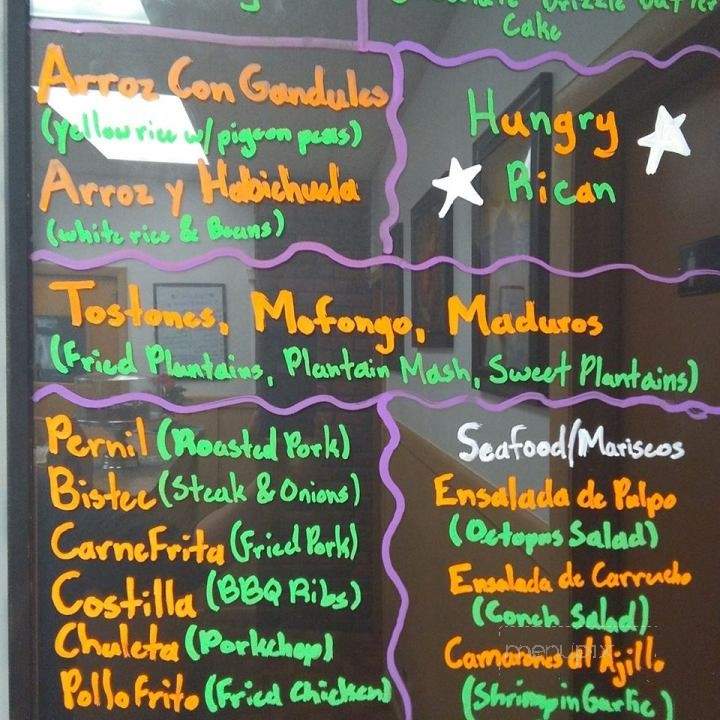 Chocolate Drizzle Butter
Cake
Arroz Con Gandules
(yellow rice w/ pigeon peas)
Arroz y Habichuela
(white rice & Beans)
Hungry
Rican
Tostones, Mofongo, Maduros
(Fried Plantains, Plantain Mash, Sweet Plantains)
Pernil (Roasted Pork)
Bistec (Steak & Onions)
Carne Frita (Fried Pork)
Costilla (BBQ Ribs)
Chuleta (Porkchop)
Pollo Frito (Fried Chicken)
Seafood/Mariscos
Ensalada de Pulpo
(Octopus Salad)
Ensalada de Carrucho
(Conch Salad)
Camarones al Ajillo
(Shrimp in Garlic)
menupix